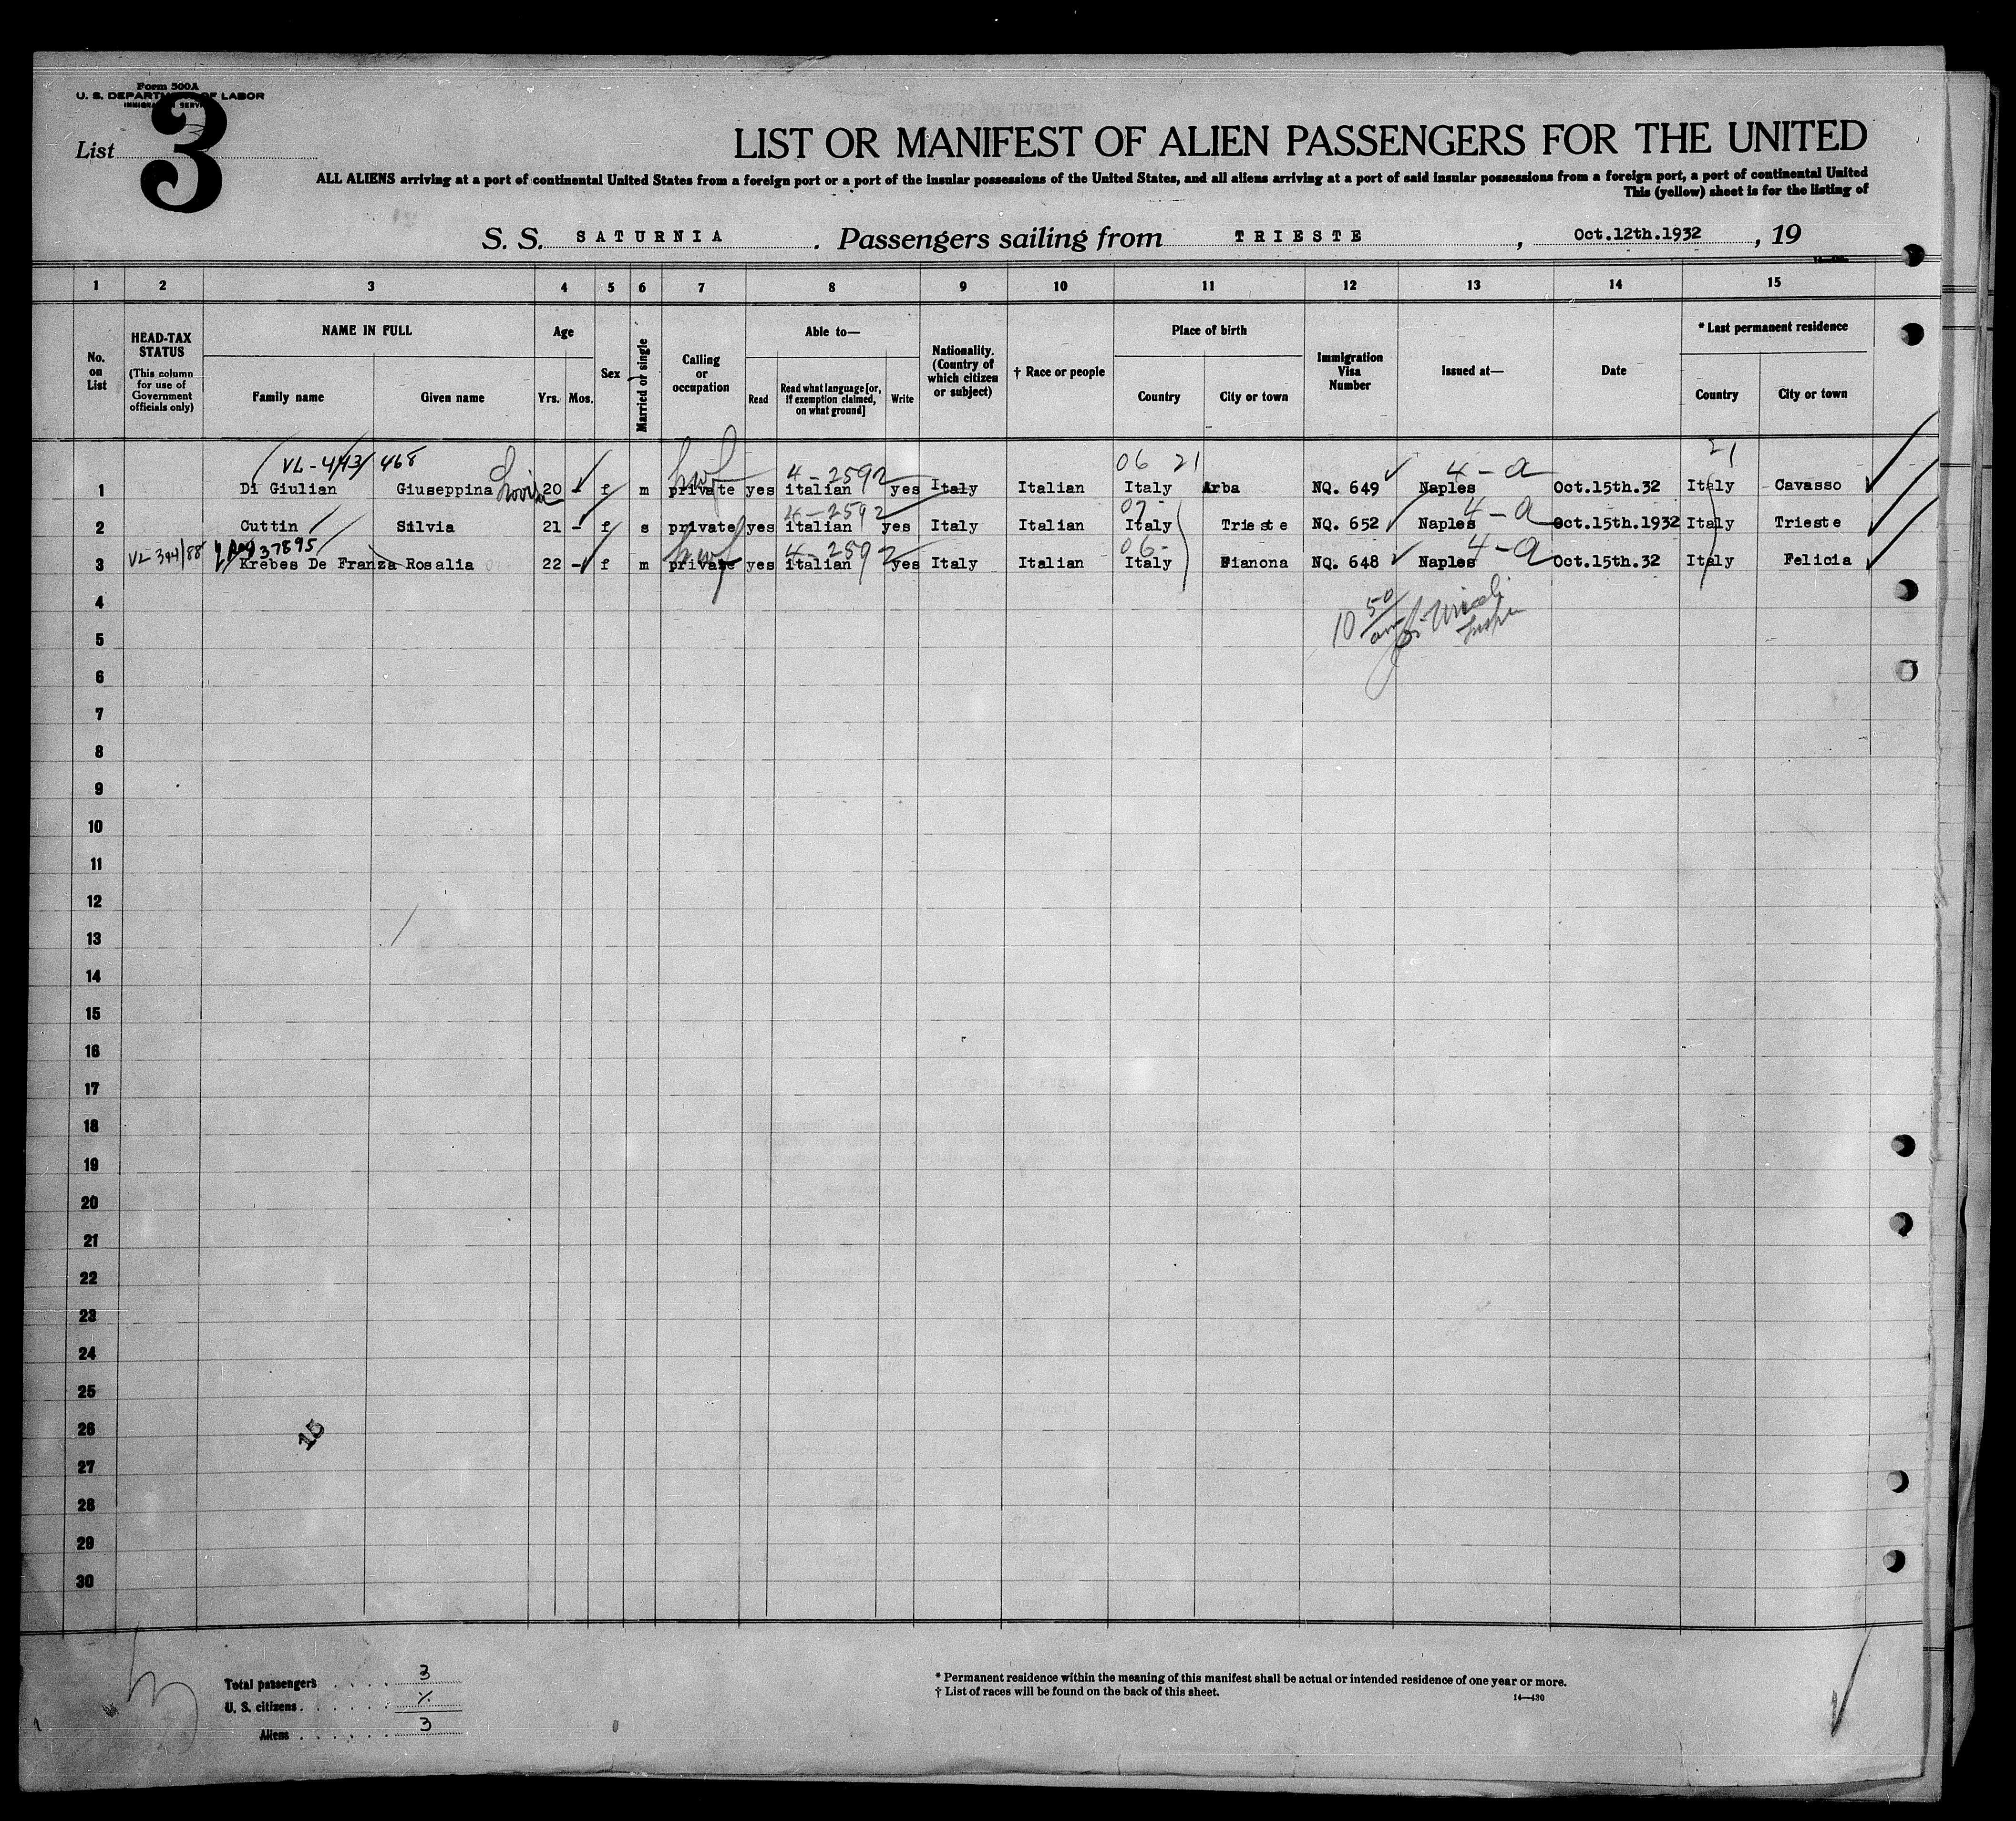 Form 500A
U. S. DEPARTMENT OF LABOR
IMMIGRATION SERVICE
List 3
LIST OR MANIFEST OF ALIEN PASSENGERS FOR THE UNITED
ALL ALIENS arriving at a port of continental United States from a foreign port or a port of the insular possessions of the United States, and all aliens arriving at a port of said insular possessions from a foreign port, a port of continental United
This (yellow) sheet is for the listing of
S. S. SATURNIA. Passengers sailing from TRIESTE, Oct.12th.1932, 19
1 2 3 4 5 6 7 8 9 10 11 12 13 14 15
No. on List
HEAD-TAX STATUS
(This column for use of Government officials only)
NAME IN FULL
Family name Given name
Age
Yrs. Mos.
Sex
Married or single
Calling or occupation
Able to—
Read
Read what language [or, if exemption claimed, on what ground]
Write
Nationality. (Country of which citizen or subject)
† Race or people
Place of birth
Country City or town
Immigration Visa Number
Issued at—
Date
* Last permanent residence
Country City or town
VL-443/468 hwf 4-2592 06 21 4-a 21
1 Di Giulian Giuseppina 20 - f m private yes italian yes Italy Italian Italy Arba NQ. 649 Naples Oct.15th.32 Italy Cavasso
4-2592 07- 4-a
2 Cuttin Silvia 21 - f s private yes italian yes Italy Italian Italy Trieste NQ. 652 Naples Oct.15th.1932 Italy Trieste
VL-344/88 37895 hwf 4-2592 06- 4-a
3 Krebes De Franza Rosalia 22 - f m private yes italian yes Italy Italian Italy Fianona NQ. 648 Naples Oct.15th.32 Italy Felicia
4
10 50 am
5
6
7
8
9
10
11
12
13
14
15
16
17
18
19
20
21
22
23
24
25
26
15
27
28
29
30
Total passengers 3
U. S. citizens
Aliens 3
* Permanent residence within the meaning of this manifest shall be actual or intended residence of one year or more.
† List of races will be found on the back of this sheet.
14—430